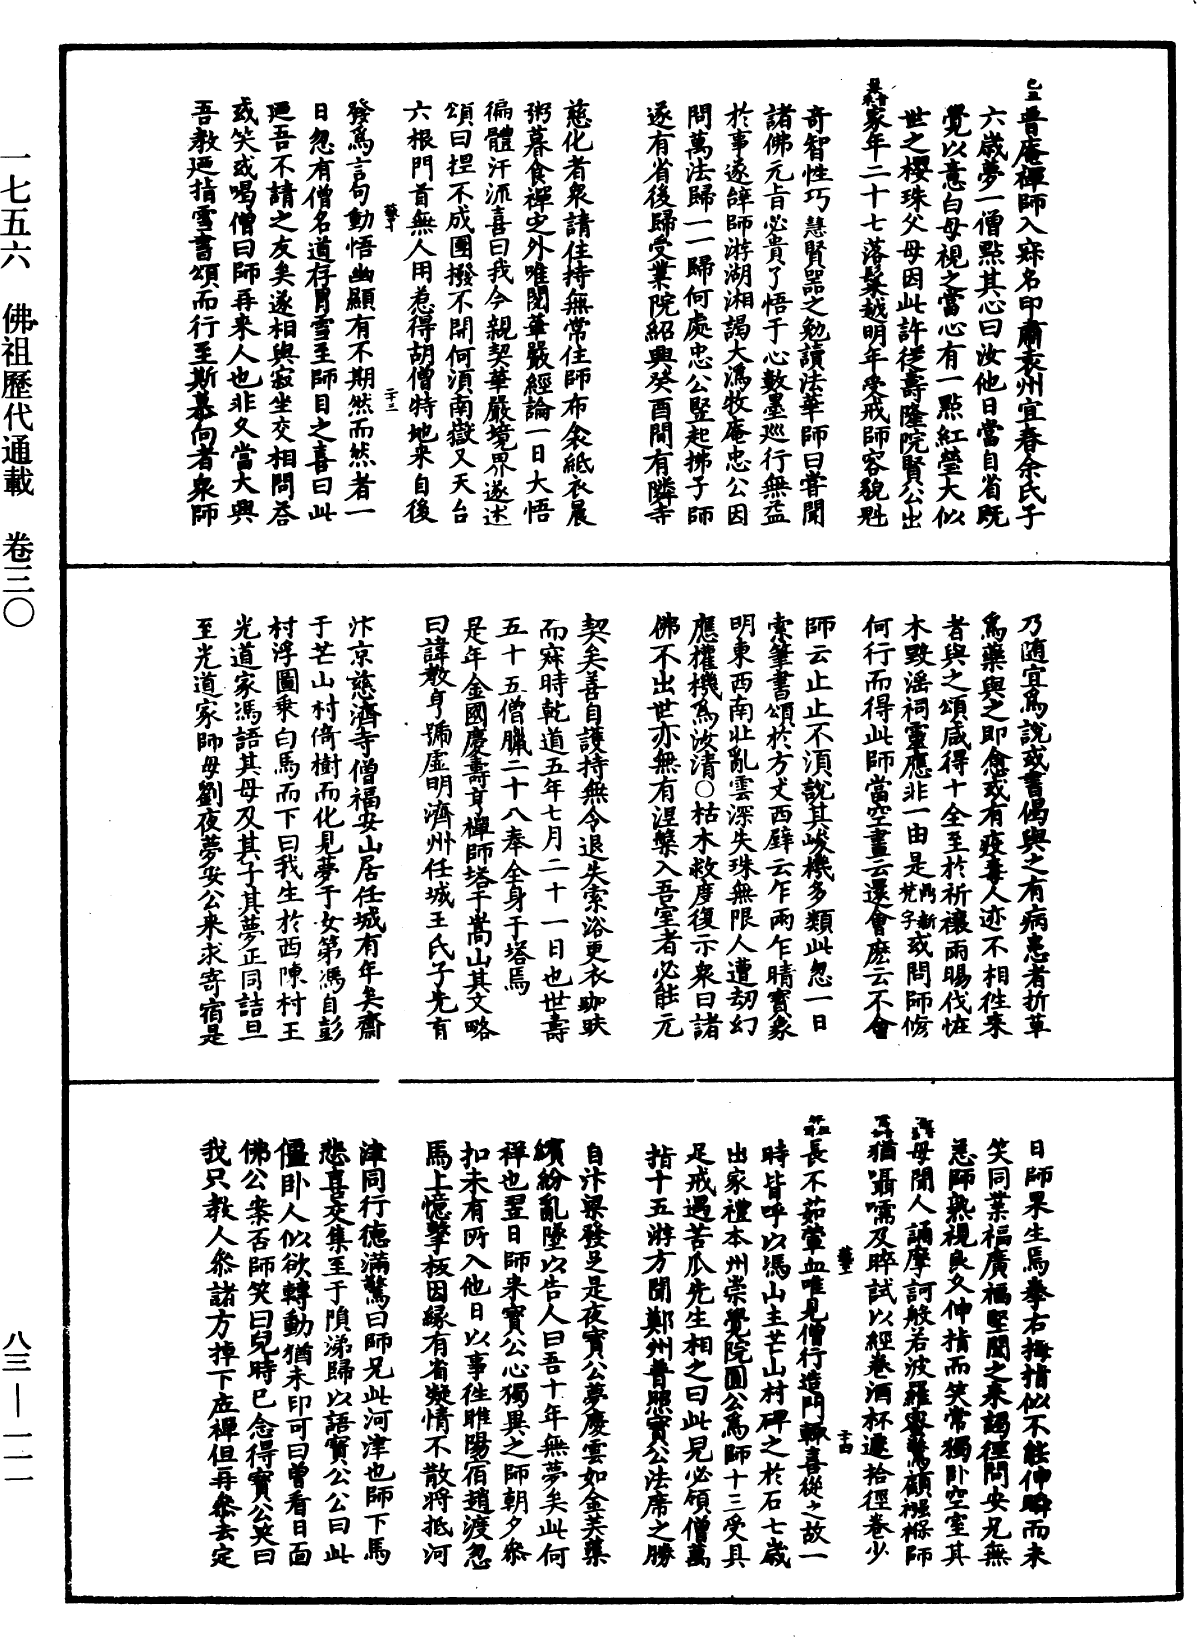 一七五六　佛祖歷代通載　卷三〇
八三—一一一
己丑普庵禪師入寂名印肅袁州宜春余氏子
六歲夢一僧點其心曰汝他日當自省既
覺以意白母視之當心有一點紅瑩大似
世之櫻珠父母因此許從壽隆院賢公出
家年二十七落髮越明年受戒師容貌魁
奇智性巧慧賢器之勉讀法華師曰嘗聞
諸佛元旨必貴了悟于心數墨巡行無益
於事遂辭師游湖湘謁大溈牧庵忠公因
問萬法歸一一歸何處忠公竪起拂子師
遂有省後歸受業院紹興癸酉間有隣寺
慈化者衆請住持無常住師布衾紙衣晨
粥暮食禪定外唯閱華嚴經論一日大悟
徧體汗流喜曰我今親契華嚴境界遂述
頌曰揑不成團撥不開何須南嶽又天台
六根門首無人用惹得胡僧特地来自後
二十三
發爲言句動悟幽顯有不期然而然者一
日忽有僧名道存冐雪至師目之喜曰此
廼吾不請之友矣遂相與寂坐交相問荅
或笑或喝僧曰師再来人也非久當大興
吾教廼指雪書頌而行至斯慕向者衆師
乃随宜爲說或書偈與之有病患者折草
爲藥與之即愈或有疫毒人迹不相徃来
者與之頌咸得十全至於祈禳雨暘伐怪
木毀滛祠靈應非一由是鼎新梵宇或問師修
何行而得此師當空畫云還會麽云不會
師云止止不須說其峻機多類此忽一日
索筆書頌於方丈西壁云乍雨乍晴寳象
明東西南北亂雲深失珠無限人遭刼幻
應權機爲汝清〇枯木救度復示衆曰諸
佛不出世亦無有涅槃入吾室者必能元
契矣善自護持無令退失索浴更衣跏趺
而寂時乾道五年七月二十一日也世壽
五十五僧臘二十八奉全身于塔焉
是年金國慶壽亨禪師塔于嵩山其文略
曰諱教亨號虛明濟州任城王氏子先有
汴京慈濟寺僧福安山居任城有年矣齋
于芒山村倚樹而化見夢于女弟馮自彭
村浮圖乘白馬而下曰我生於西陳村王
光道家馮語其母及其子其夢正同詰旦
至光道家師母劉夜夢安公来求寄宿是
日師果生焉拳右拇指似不能伸瞬而未
笑同業福廣福堅聞之来謁徑問安兄無
恙師熟視良久伸指而笑常獨卧空室其
母聞人誦摩訶般若波羅蜜驚顧襁褓師
猶囁嚅及晬試以經卷酒杯遽拾徑卷少
二十四
長不茹葷血唯見僧行造門輙喜從之故一
時皆呼以馮山主芒山村碑之於石七歲
出家禮本州崇覺院圓公爲師十三受具
足戒遇苦瓜先生相之曰此見必領僧萬
指十五游方聞鄭州普照寳公法席之勝
自汴梁發足是夜寳公夢慶雲如金芙蕖
繽紛亂墜以告人曰吾十年無夢矣此何
禪也翌日師来寳公心獨異之師朝夕叅
扣未有所入他日以事徃睢陽宿趙渡忽
馬上憶擊板因縁有省凝情不散將抵河
津同行德滿驚曰師兄此河津也師下馬
悲喜交集至于隕涕歸以語寳公公曰此
僵卧人似欲轉動猶未印可曰曾看日面
佛公案否師笑曰兒時已念得寳公笑曰
我只教人叅諸方掉下底禪但再叅去定